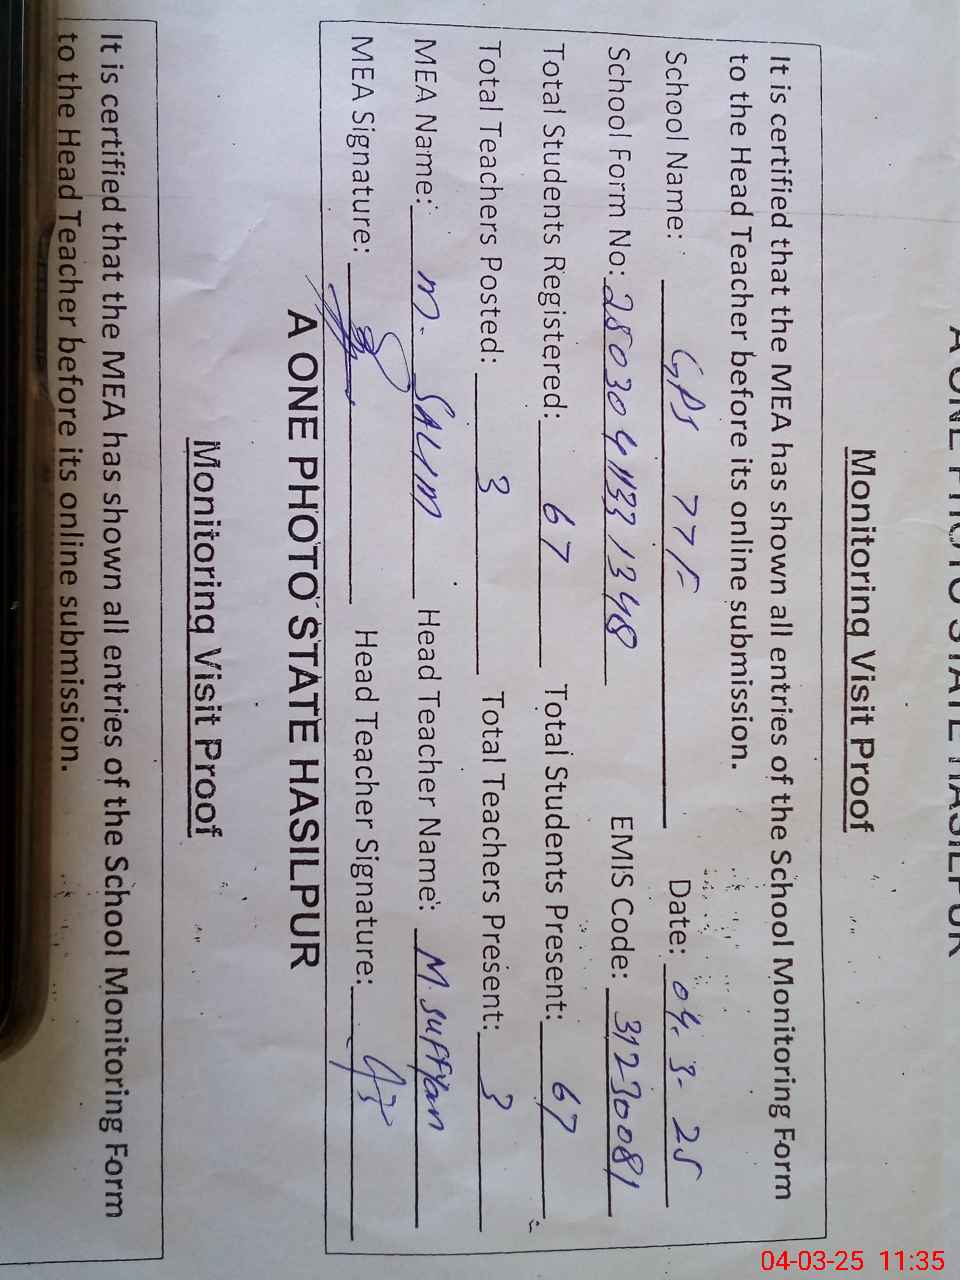 A ONE PHOTO STATE HASILPUR
Monitoring Visit Proof
It is certified that the MEA has shown all entries of the School Monitoring Form
to the Head Teacher before its online submission.
School Name: GPS 77/F Date: 04. 3- 25
School Form No: EMIS Code: 31230081
Total Students Registered: 67 Total Students Present: 67
Total Teachers Posted: 3 Total Teachers Present: 3
MEA Name: M. SALIM Head Teacher Name: M. Suffyan
MEA Signature: Head Teacher Signature:
A ONE PHOTO STATE HASILPUR
Monitoring Visit Proof
It is certified that the MEA has shown all entries of the School Monitoring Form
to the Head Teacher before its online submission.
04-03-25 11:35